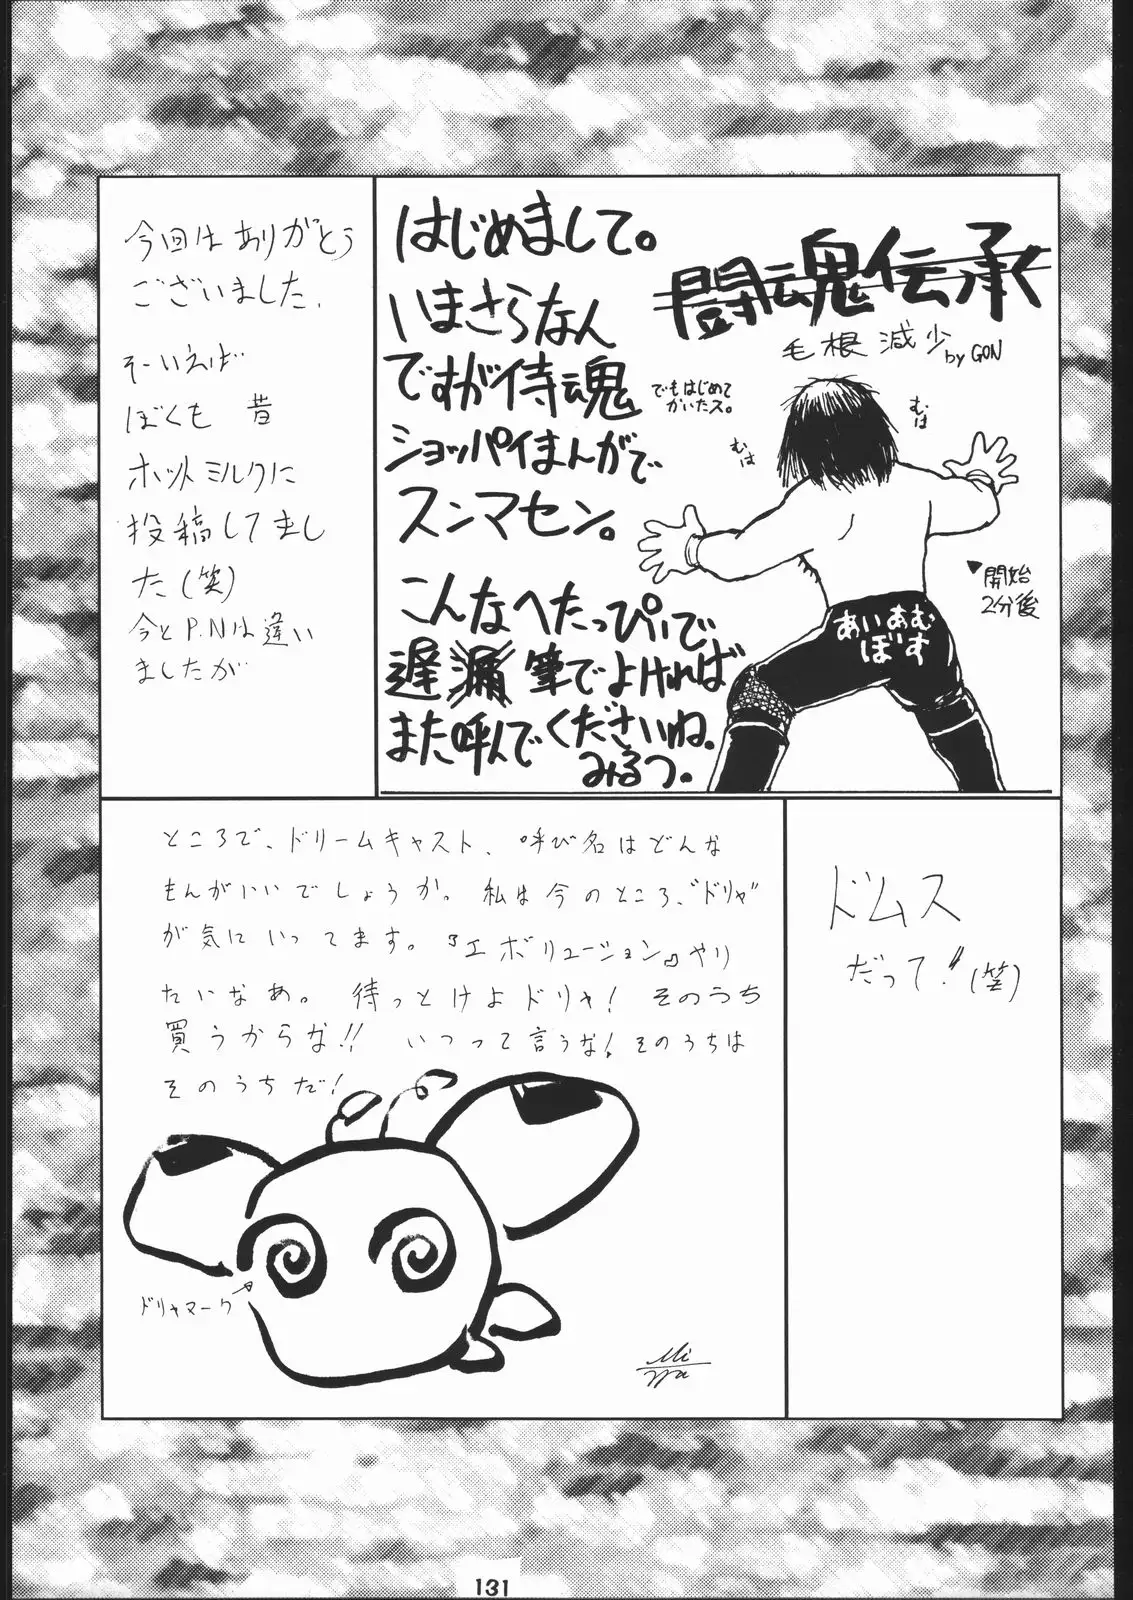 はじめまして。
いまさらなん
ですが侍魂
ショッパイまんがで
スンマセン。
こんなへたっぴいで
遅漏筆でよければ
また呼んでくださいね。
みるつ。
闘魂伝承
毛根減少 by GON
でもはじめて
かいたス。
むは
むは
▼開始
2分後
あいあむ
ぼす
今回はありがとう
ございました、
そーいえば
ぼくも 昔
ホットミルクに
投稿してまし
た(笑)
今とP.Nは違い
ましたが
ドムス
だって!(笑)
ところで、ドリームキャスト、呼び名はどんな
もんがいいでしょうか。私は今のところ、“ドリャ”
が気にいってます。『エボリューション』やり
たいなあ。待っとけよドリャ!そのうち
買うからな!!いつって言うな!そのうちは
そのうちだ!
ドリャマーク
131